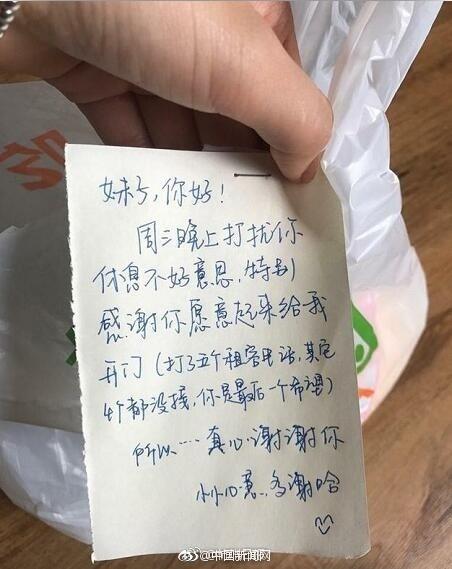 妹子，你好！
周二晚上打扰你
休息不好意思，特别
感谢你愿意起来给我
开门（打了五个租客电话，其它
4个都没接，你是最后一个希望）
所以……真心谢谢你
小小心意，多谢哈
@中国新闻网